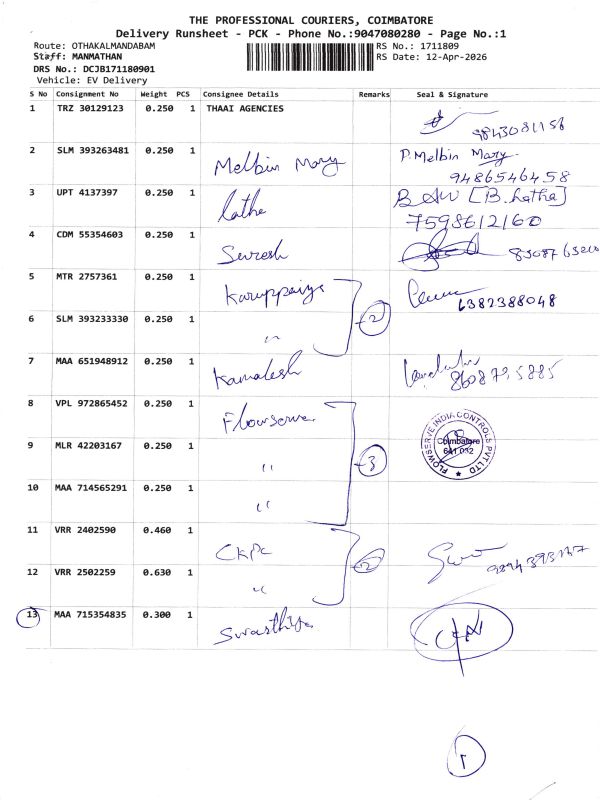 THE PROFESSIONAL COURIERS, COIMBATORE
Delivery Runsheet - PCK - Phone No.:9047080280 - Page No.:1
Route: OTHAKALMANDABAM
RS No.: 1711809
Staff: MANMATHAN
RS Date: 12-Apr-2026
DRS No.: DCJB171180901
Vehicle: EV Delivery
S No Consignment No Weight PCS Consignee Details Remarks Seal & Signature
1 TRZ 30129123 0.250 1 THAAI AGENCIES
9843081156
2 SLM 393263481 0.250 1 Melbin Mary P. Melbin Mary
9486546458
3 UPT 4137397 0.250 1 Latha [B. Latha]
7598612160
4 CDM 55354603 0.250 1 Suresh
5 MTR 2757361 0.250 1 Karuppaiya 2
6382388048
6 SLM 393233330 0.250 1 "
7 MAA 651948912 0.250 1 Kamalesh
8 VPL 972865452 0.250 1 Flowserve
FLOWSERVE INDIA CONTROLS PVT LTD
Coimbatore
641 032
9 MLR 42203167 0.250 1 " 3
10 MAA 714565291 0.250 1 "
11 VRR 2402590 0.460 1 CKPC 2
12 VRR 2502259 0.630 1 "
13 MAA 715354835 0.300 1 Swasthiya
1